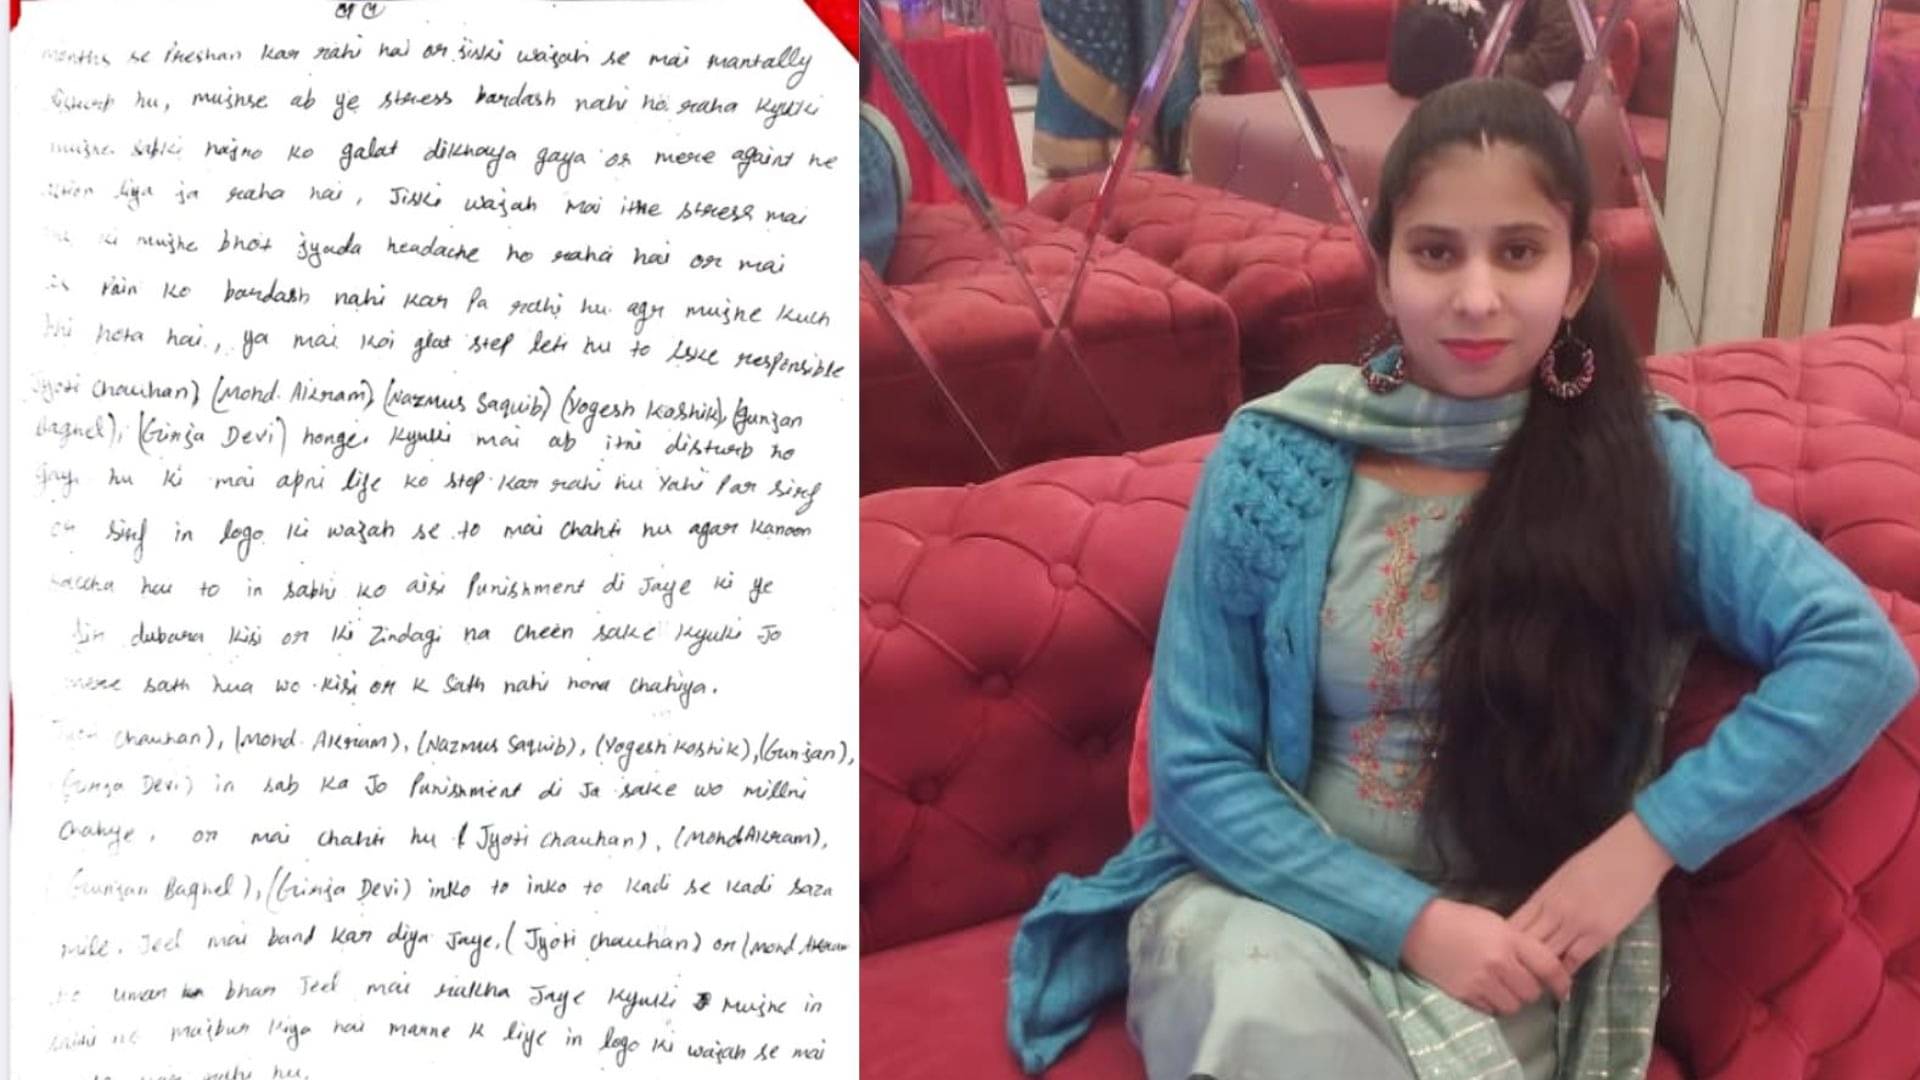 months se Preshan kar rahi hai or jiski wajah se mai mantally
disturb hu, mujhse ab ye stress bardash nahi ho raha kyuki
mujhe sabki najro ko galat dikhaya gaya or mere againt ne
action liya ja raha hai, Jiski wajah mai itne stress mai
ki mujhe bhot jyada headache ho raha hai or mai
is Pain ko bardash nahi kar Pa rahi hu. agr mujhe kuch
bhi hota hai, ya mai koi glat step leti hu to iske responsible
Jyoti Chauhan) (Mohd. Akram) (Nazmus Saquib) (Yogesh Koshik), (Gunjan
Baghel), (Girija Devi) honge. Kyuki mai ab itni disturb ho
gayi hu ki mai apni life ko stop kar rahi hu Yahi Par Sirf
or Sirf in logo ki wajah se to mai Chahti hu agar kanoon
saccha hai to in sabhi ko aisi Punishment di Jaye ki ye
dubara kisi or ki Zindagi na Cheen sake kyuki Jo
mere sath hua wo kisi or k Sath nahi hona Chahiya.
Jyoti Chauhan), (Mohd. Akram), (Nazmus Saquib), (Yogesh Koshik), (Gunjan),
(Girija Devi) in sab ka Jo Punishment di Ja sake wo millni
Chahye, or mai chahti hu (Jyoti Chauhan), (Mohd Akram),
(Gunjan Baghel), (Girija Devi) inko to inko to kadi se kadi saza
mile. Jeel mai band kar diya Jaye. (Jyoti Chauhan) or (Mohd Akram
ko umar bhar Jeel mai rakha Jaye kyuki mujhe in
sabhi ne majbur kiya hai marne k liye in logo ki wajah se mai
rahi hu.